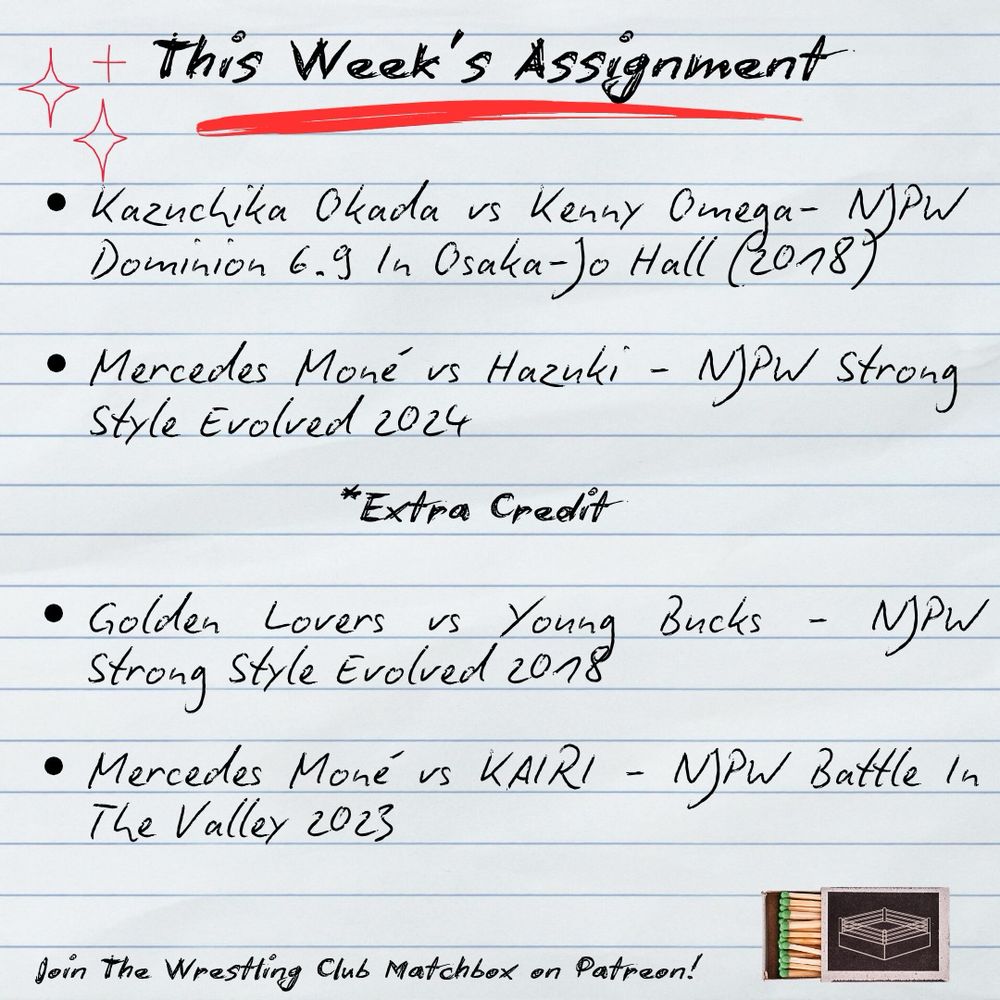 This Week's Assignment
• Kazuchika Okada vs Kenny Omega- NJPW
Dominion 6.9 In Osaka-Jo Hall (2018)
• Mercedes Moné vs Hazuki - NJPW Strong
Style Evolved 2024
*Extra Credit
• Golden Lovers vs Young Bucks - NJPW
Strong Style Evolved 2018
• Mercedes Moné vs KAIRI - NJPW Battle In
The Valley 2023
Join The Wrestling Club Matchbox on Patreon!